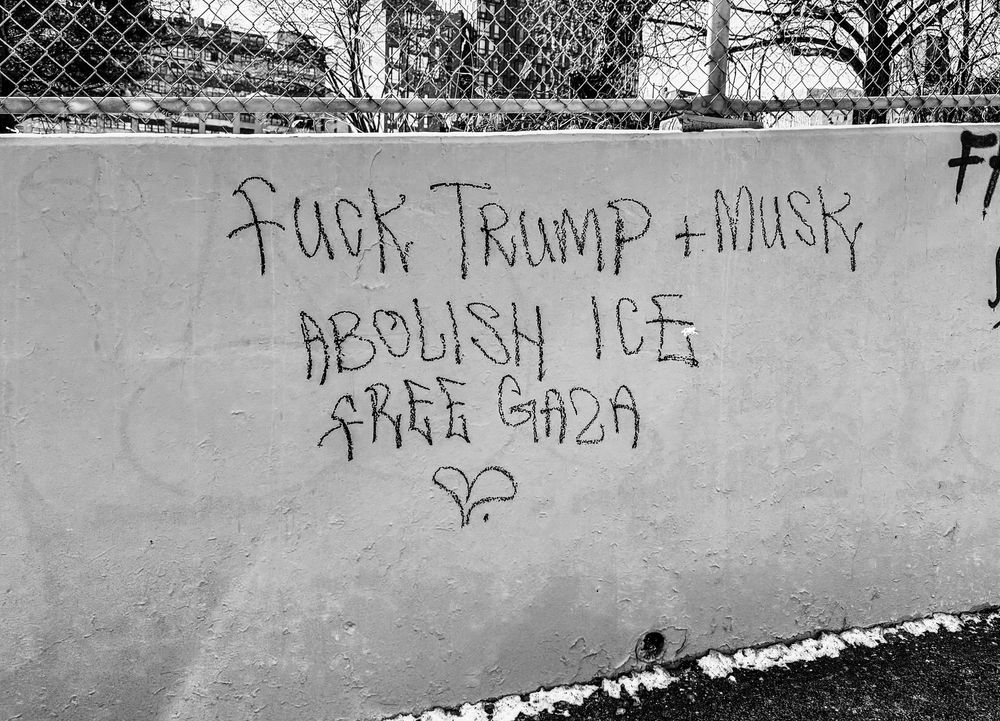 Fuck Trump + Musk
ABOLISH ICE
FREE GAZA